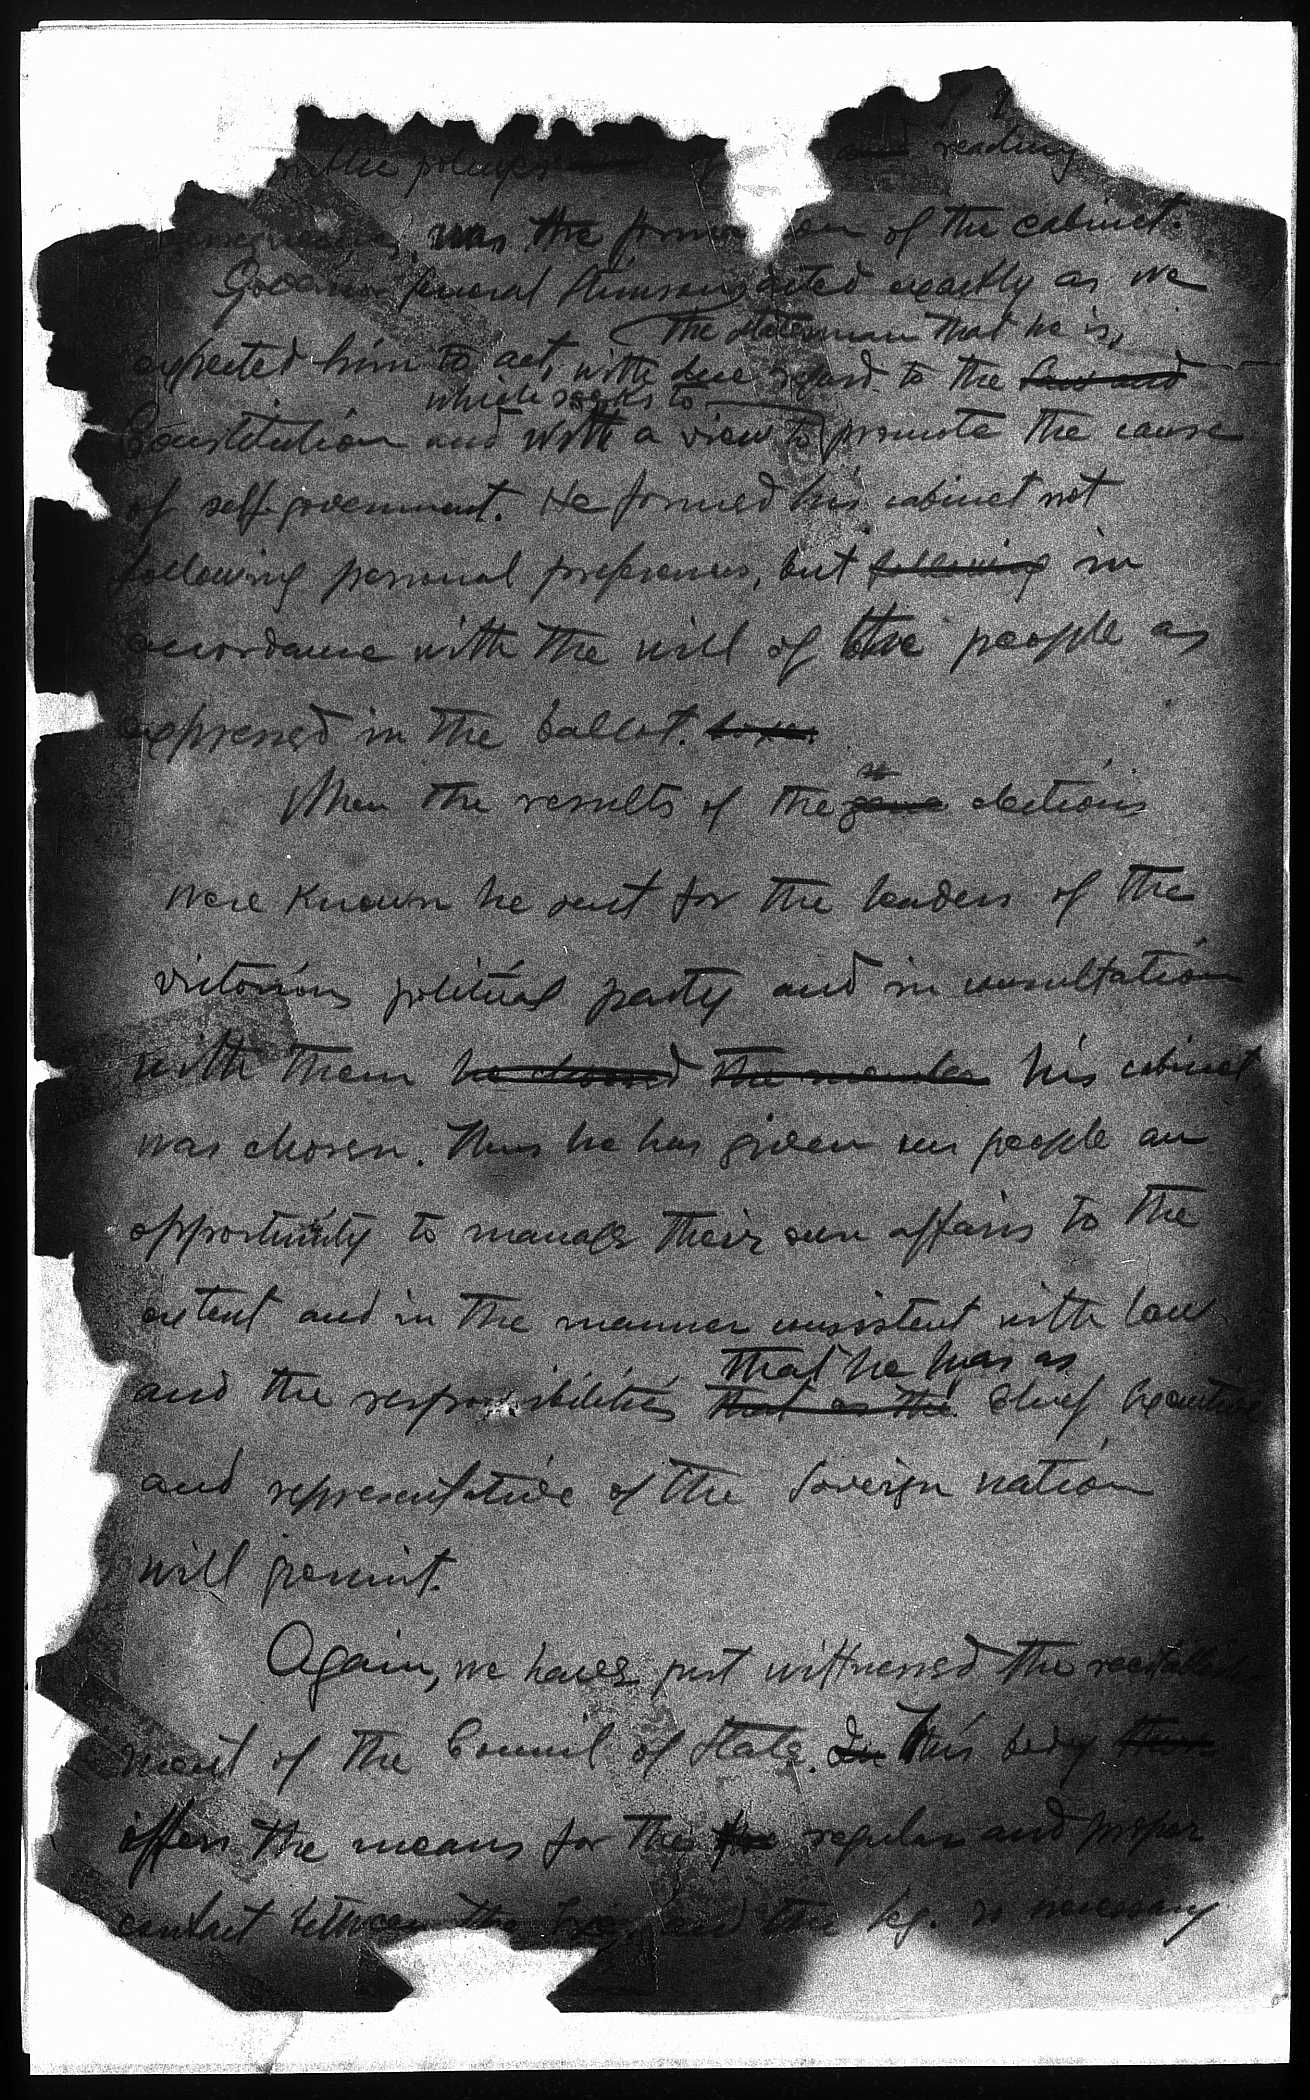 public pledges and reading
was the formation of the cabinet.
Governor General Stimson acted exactly as we
the statesman that he is,
expected him to act, with due regard to the law and
which seeks to
Constitution and with a view to promote the cause
of self-government. He formed his cabinet not
following personal preferences, but following in
accordance with the will of the people as
expressed in the ballot. box.
When the results of the elections
were known he sent for the leaders of the
victorious political party and in consultation
with them he choosed the member his cabinet
was chosen. Thus he has given our people an
opportunity to manage their own affairs to the
extent and in the manner consistent with law
that he has as
and the responsibilities that as the Chief Executive
and representative of the Sovereign nation
will permit.
Again, we have just wittnessed the reestablish
ment of the Council of State. In This body
offers the means for the regular and proper
contact between the Exec. and the leg. so necessary